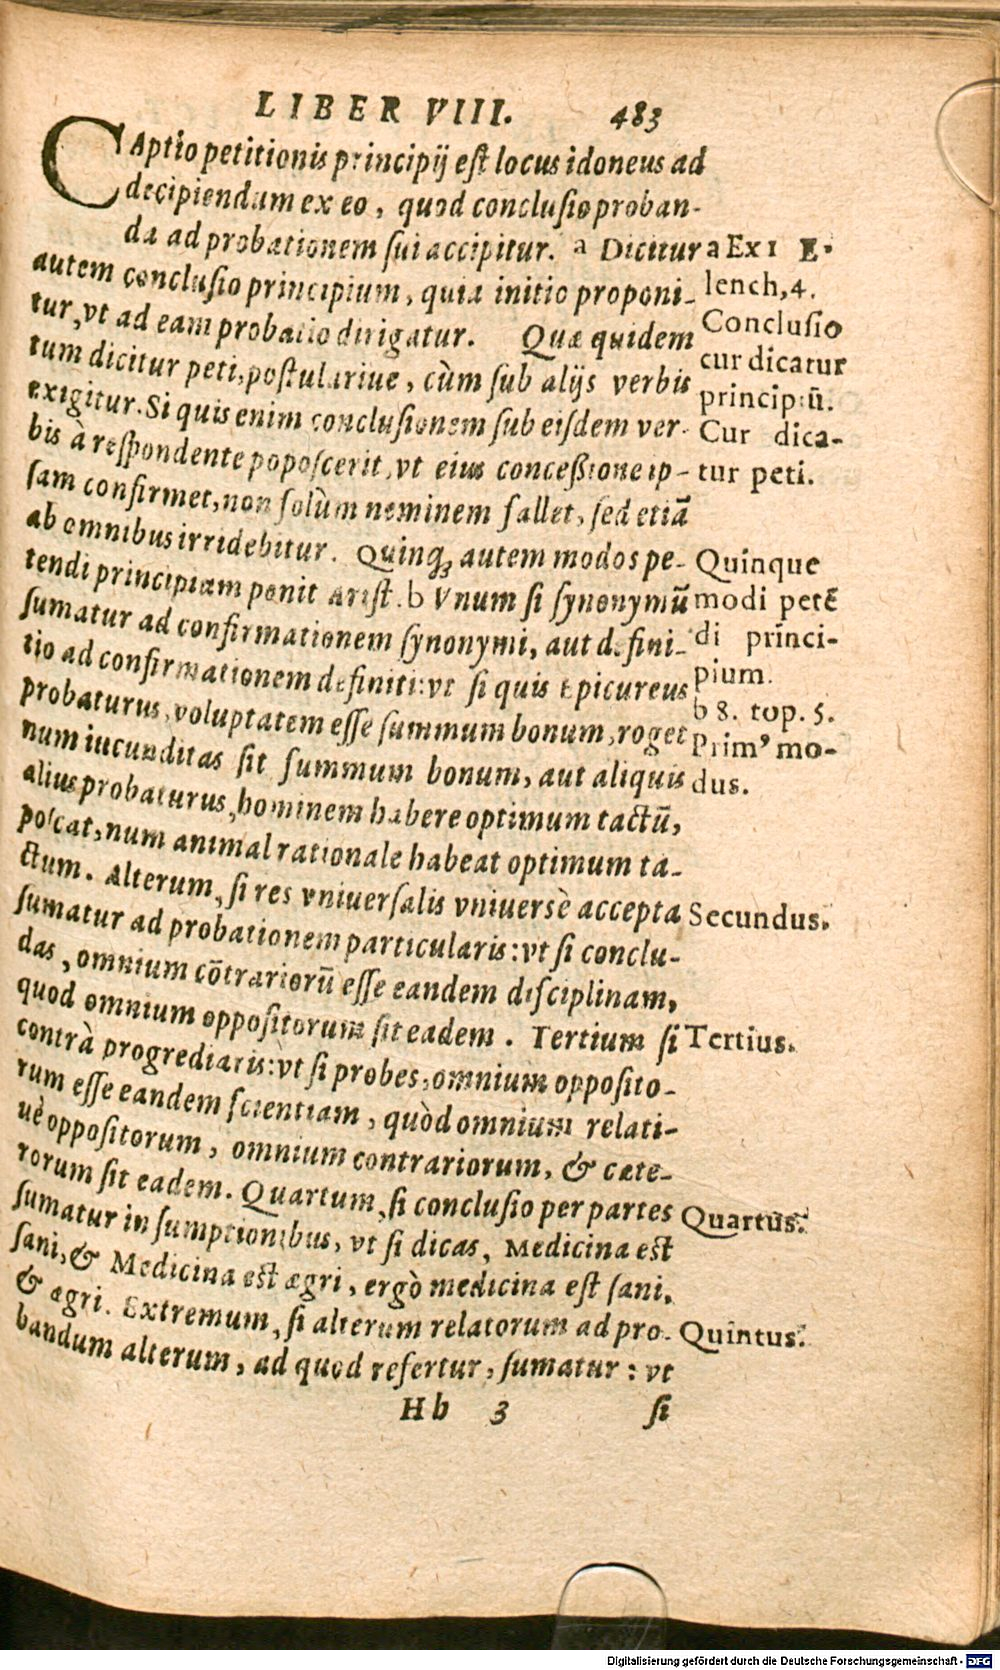 LIBER VIII. 483
CAptio petitionis principij est locus idoneus ad
decipiendum ex eo, quod conclusio proban-
da ad probationem sui accipitur. a Dicitur
autem conclusio principium, quia initio proponi-
tur, vt ad eam probatio dirigatur. Quæ quidem
tum dicitur peti, postulariue, cùm sub alijs verbis
exigitur. Si quis enim conclusionem sub eisdem ver-
bis à respondente poposcerit, vt eius concessione ip-
sam confirmet, non solùm neminem fallet, sed etiã
ab omnibus irridebitur. Quinq₃ autem modos pe-
tendi principium ponit Arist. b Vnum si synonymũ
sumatur ad confirmationem synonymi, aut defini-
tio ad confirmationem definiti: vt si quis Epicureus
probaturus, voluptatem esse summum bonum, roget
num iucunditas sit summum bonum, aut aliquis
alius probaturus, hominem habere optimum tactũ,
poscat, num animal rationale habeat optimum ta-
ctum. Alterum, si res vniuersalis vniuersè accepta
sumatur ad probationem particularis: vt si conclu-
das, omnium cõtrariorũ esse eandem disciplinam,
quod omnium oppositorum sit eadem. Tertium si
contrà progrediaris: vt si probes, omnium opposito-
rum esse eandem scientiam, quòd omnium relati-
uè oppositorum, omnium contrariorum, & cæte-
rorum sit eadem. Quartum, si conclusio per partes
sumatur in sumptionibus, vt si dicas, Medicina est
sani, & Medicina est ægri, ergò medicina est sani,
& ægri. Extremum, si alterum relatorum ad pro-
bandum alterum, ad quod refertur, sumatur: vt
Hb 3 si
a Ex 1 E-
lench, 4.
Conclusio
cur dicatur
principiũ.
Cur dica-
tur peti.
Quinque
modi petẽ
di princi-
pium.
b 8. top. 5.
Prim⁹ mo-
dus.
Secundus.
Tertius.
Quartus.
Quintus.
Digitalisierung gefördert durch die Deutsche Forschungsgemeinschaft - DFG